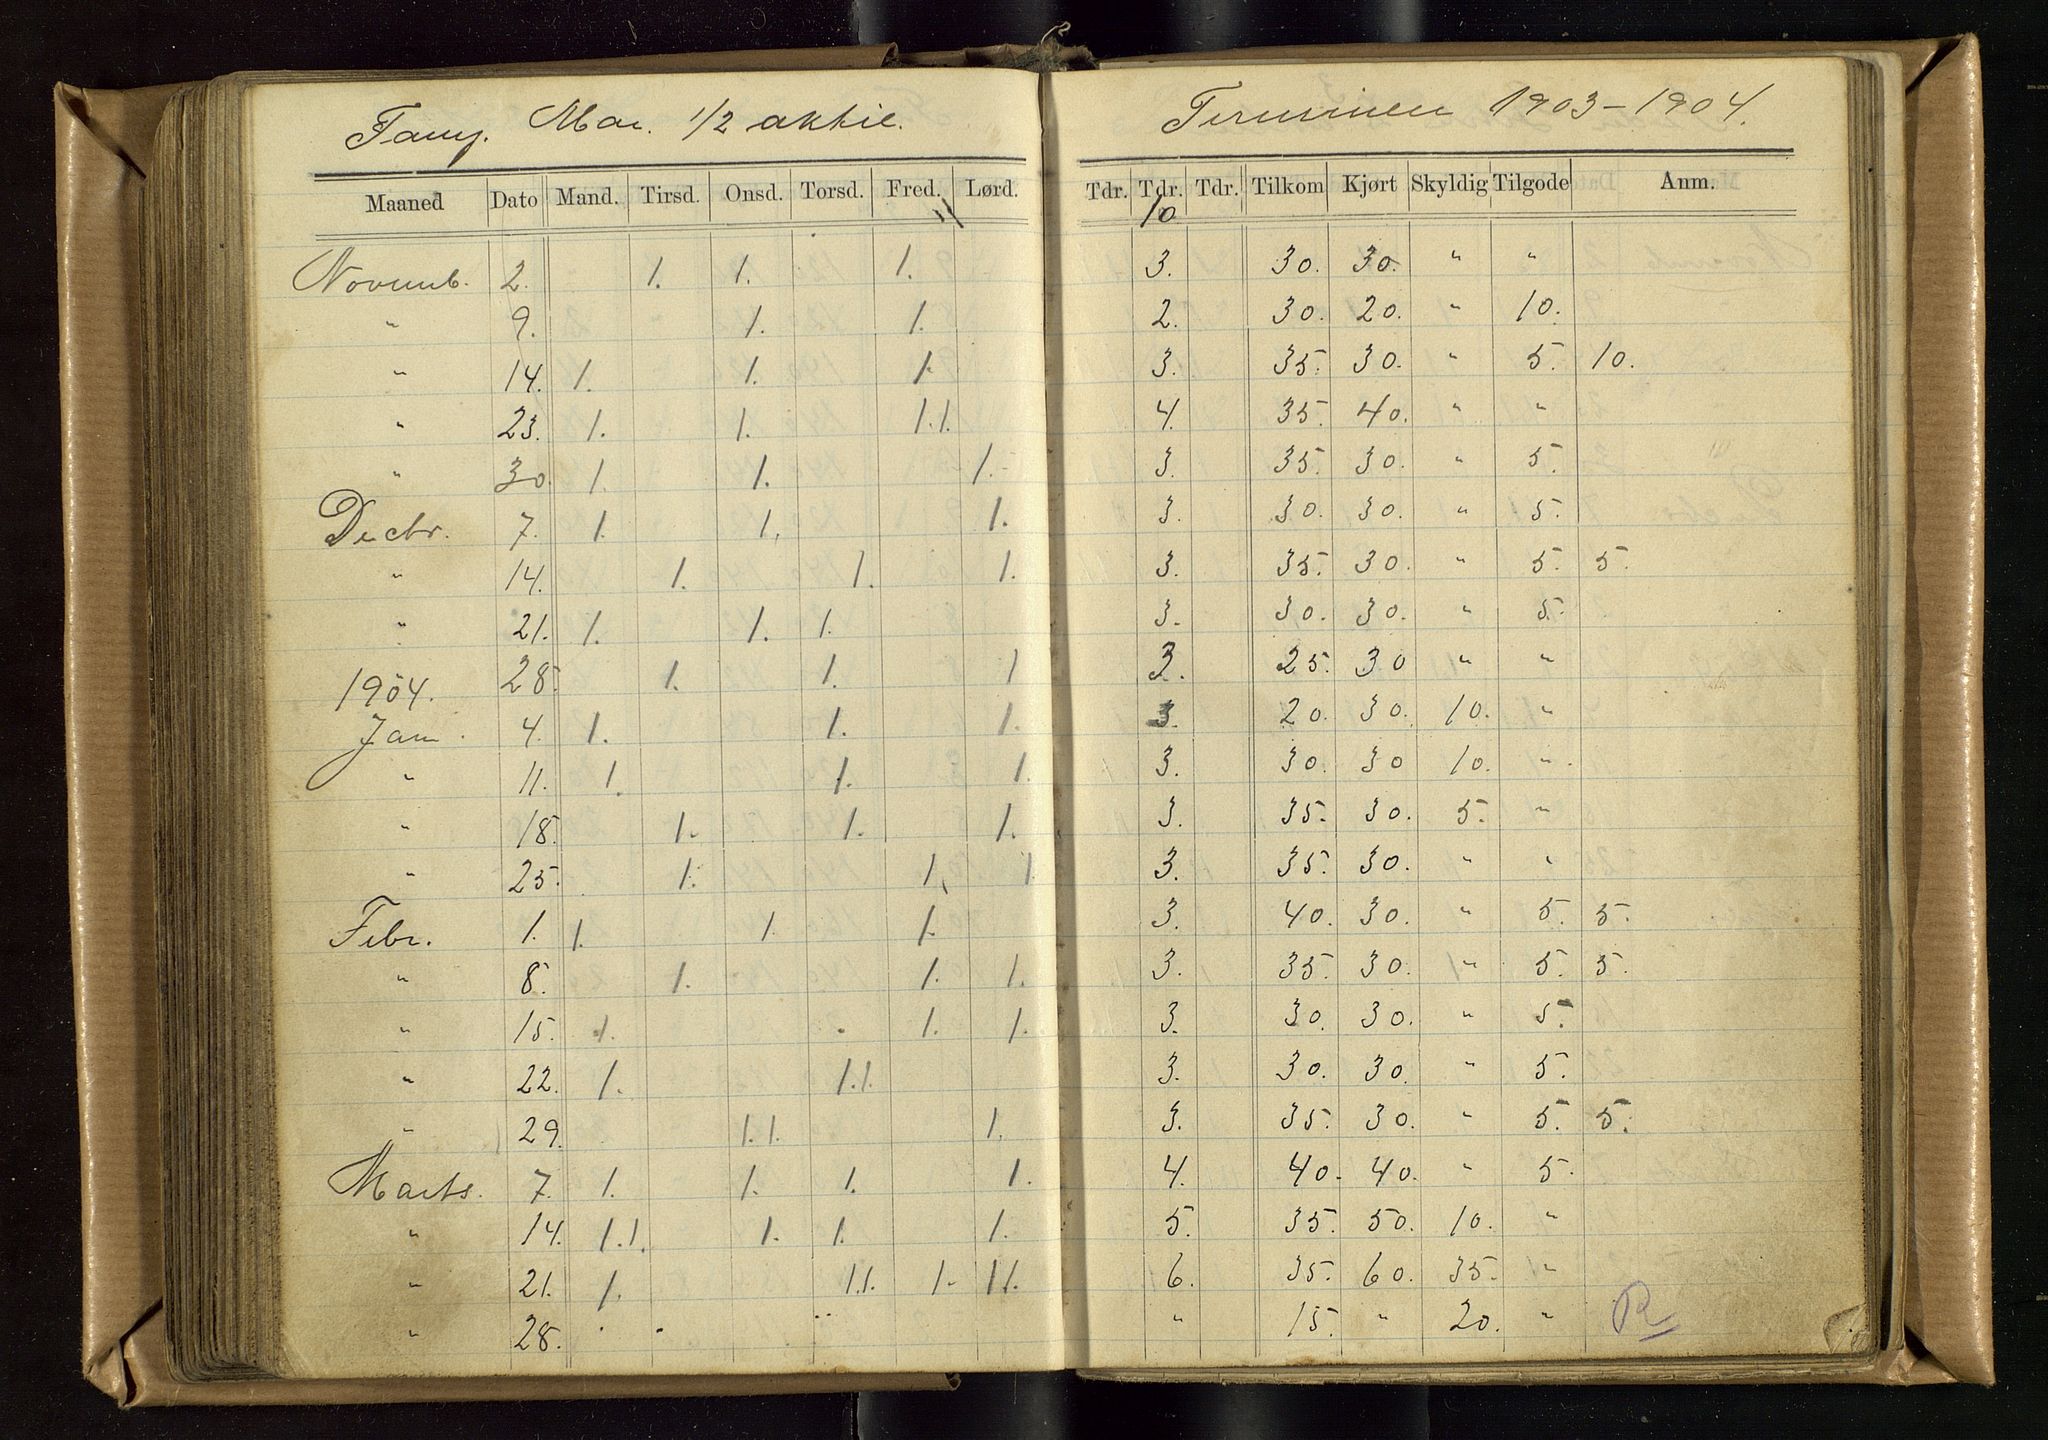 Tany. Mar. 1/2 aktie. Terminen 1903-1904.
Maaned Dato Mand. Tirsd. Onsd. Torsd. Fred. Lørd. Tdr. Tdr. Tdr. Tilkom Kjørt Skyldig Tilgode Anm.
10
Novemb. 2. 1. 1. 1. 3. 30. 30. " "
" 9. 1. 1. 2. 30. 20. " 10.
" 14. 1. 1. 1. 3. 35. 30. " 5. 10.
" 23. 1. 1. 1.1. 4. 35. 40. " "
" 30. 1. 1. 1. 3. 35. 30. " 5.
Decbr. 7. 1. 1. 1. 3. 30. 30. " 5.
" 14. 1. 1. 1. 3. 35. 30. " 5. 5.
" 21. 1. 1. 1. 3. 30. 30. " 5.
28. 1. 1. 1 3. 25. 30 " "
1904.
Jan. 4. 1. 1. 1. 3. 20. 30. 10. "
" 11. 1. 1. 1. 3. 30. 30 10. "
" 18. 1. 1. 1. 3. 35. 30. 5. "
" 25. 1. 1. 1 3. 35. 30. " "
Febr. 1. 1. 1. 1. 3. 40. 30. " 5. 5.
" 8. 1. 1. 1. 3. 35. 30. " 5. 5.
" 15. 1. 1. 1. 3. 30. 30. " 5.
" 22. 1. 1.1. 3. 30. 30. " 5.
" 29. 1.1. 1. 3. 35. 30. " 5. 5.
Marts. 7. 1. 1. 1. 1. 4. 40. 40. " 5.
" 14. 1.1. 1. 1. 1. 5. 35. 50. 10. "
" 21. 1. 1.1. 1. 11. 6. 35. 60. 35. "
" 28. " 15. " 20. " R